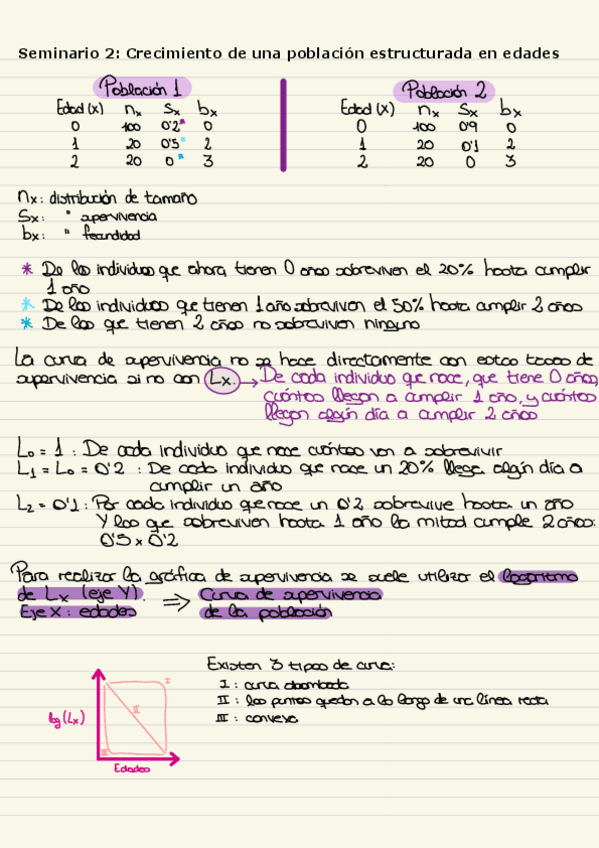 Seminario 2: Crecimiento de una población estructurada en edades
Población 1
Edad (x) nx Sx bx
0 100 0'2* 0
1 20 0'5* 2
2 20 0* 3
Población 2
Edad (x) nx Sx bx
0 100 0'9 0
1 20 0'1 2
2 20 0 3
nx: distribución de tamaño
Sx: " supervivencia
bx: " fecundidad
* De los individuos que ahora tienen 0 años sobreviven el 20% hasta cumplir
1 año
* De los individuos que tienen 1 año sobreviven el 50% hasta cumplir 2 años
* De los que tienen 2 años no sobreviven ninguno
La curva de supervivencia no se hace directamente con estas tasas de
supervivencia si no con Lx. → De cada individuo que nace, que tiene 0 años,
cuántos llegan a cumplir 1 año, y cuántos
llegan algún día a cumplir 2 años
L0 = 1 : De cada individuo que nace cuántos van a sobrevivir
L1 = L0 = 0'2 : De cada individuo que nace un 20% llega algún día a
cumplir un año
L2 = 0'1 : Por cada individuo que nace un 0'2 sobrevive hasta un año
Y los que sobreviven hasta 1 año la mitad cumple 2 años:
0'5 x 0'2
Para realizar la gráfica de supervivencia se suele utilizar el logaritmo
de Lx (eje Y). ⇒ Curva de supervivencia
Eje X: edades de la población
Existen 3 tipos de curva:
I : curva abombada
II : los puntos quedan a lo largo de una línea recta
III : convexa
log (Lx)
I
II
III
Edades